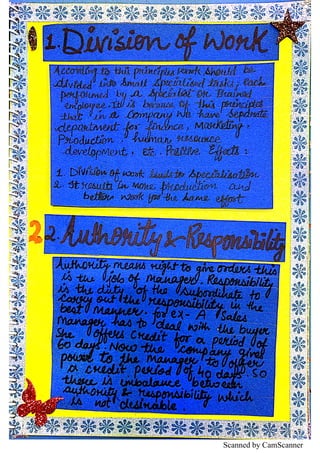 1. Division of Work
According to this principles work should be
divided into small specialised tasks; each
performed by a specialist or trained
employee. It is because of this principles
that in a company we have separate
department for finance, Marketing,
Production, human resource
development, etc. Positive Effects:
1. Division of work leads to specialisation
2. It results in more production and
better work for the same effort
2 2. Authority & Responsibility
Authority means right to give orders this
is the job of manager. Responsibility
is the duty of the subordinate to
carry out the responsibility in the
best manner. for ex- A Sales
Manager has to deal with the buyer
She offers credit for a period of
60 days. Now the company gives
power to the Manager to offer
a credit period of 40 days. So
there is imbalance between
authority & responsibility which
is not desirable.
Scanned by CamScanner